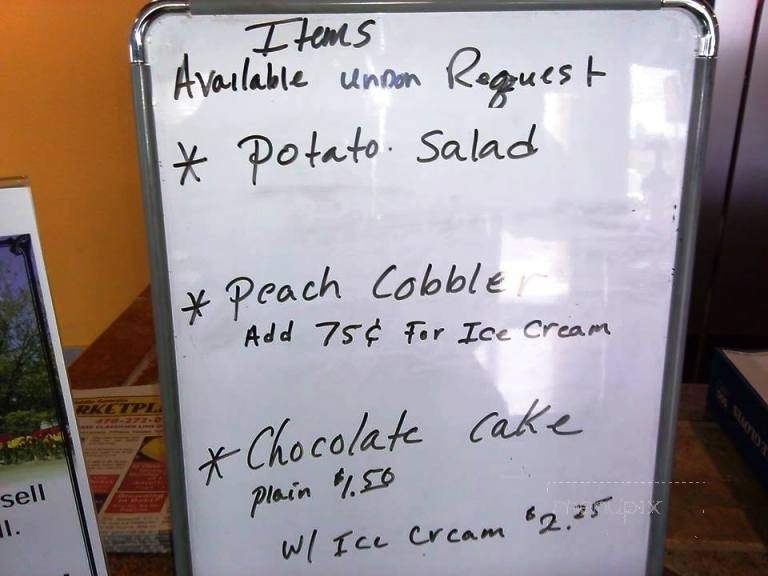 Items
Available unpon Request
* Potato. Salad
* Peach Cobbler
Add 75¢ For Ice Cream
* Chocolate cake
plain $1.50
w/ Ice Cream $2.25
menupix
RKETPL
sell
ll.